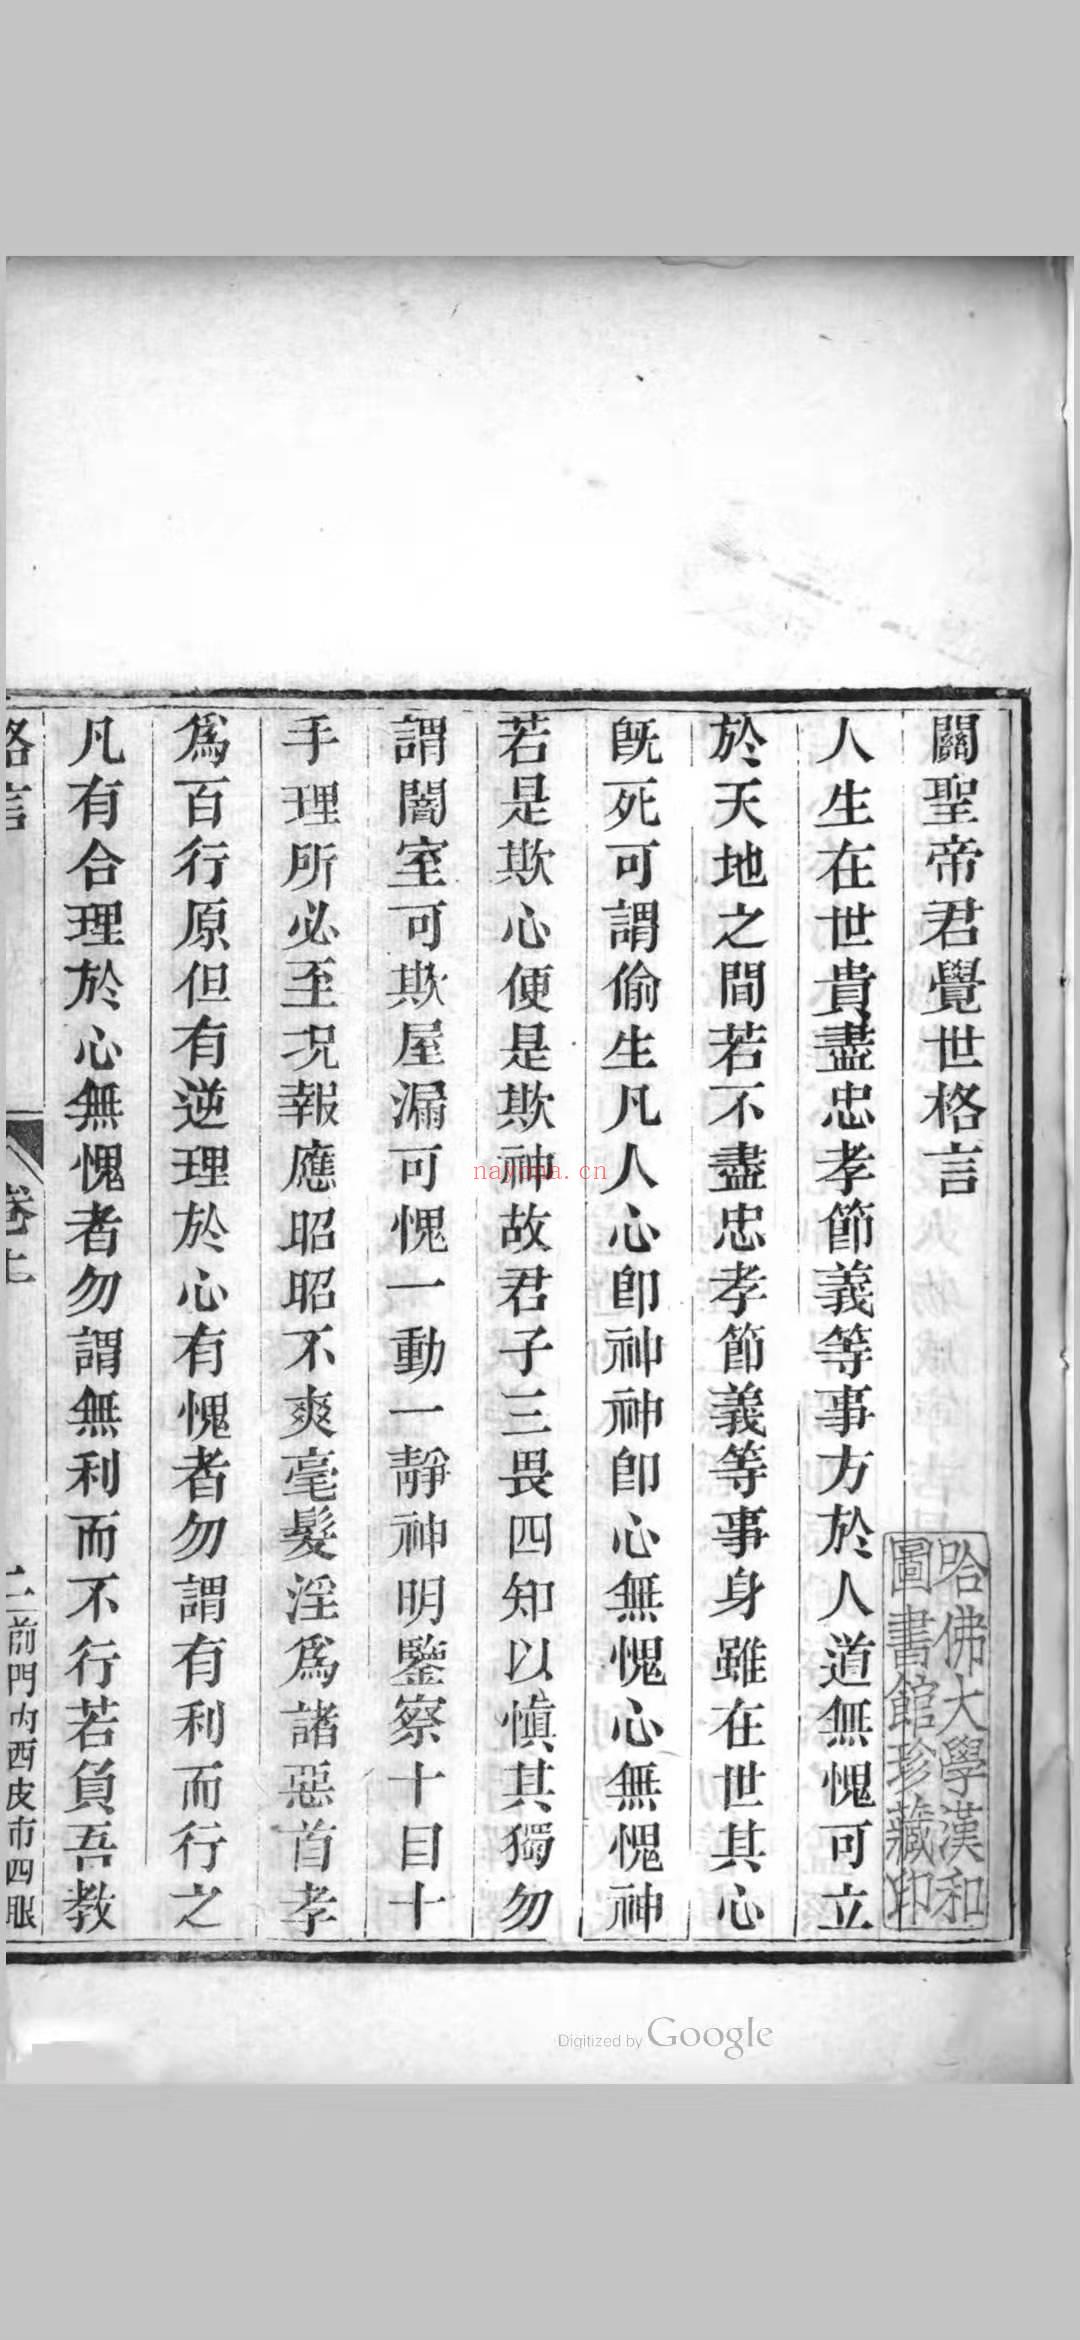 關聖帝君覺世格言
哈佛大學漢和
圖書館珍藏印
人生在世貴盡忠孝節義等事方於人道無愧可立
於天地之間若不盡忠孝節義等事身雖在世其心
旣死可謂偷生凡人心卽神神卽心無愧心無愧神
若是欺心便是欺神故君子三畏四知以愼其獨勿
謂闇室可欺屋漏可愧一動一靜神明鑒察十目十
手理所必至况報應昭昭不爽毫髮淫爲諸惡首孝
爲百行原但有逆理於心有愧者勿謂有利而行之
凡有合理於心無愧者勿謂無利而不行若負吾教
格言
卷上
二前門内西皮市四眼
nayona.cn
Digitized by Google